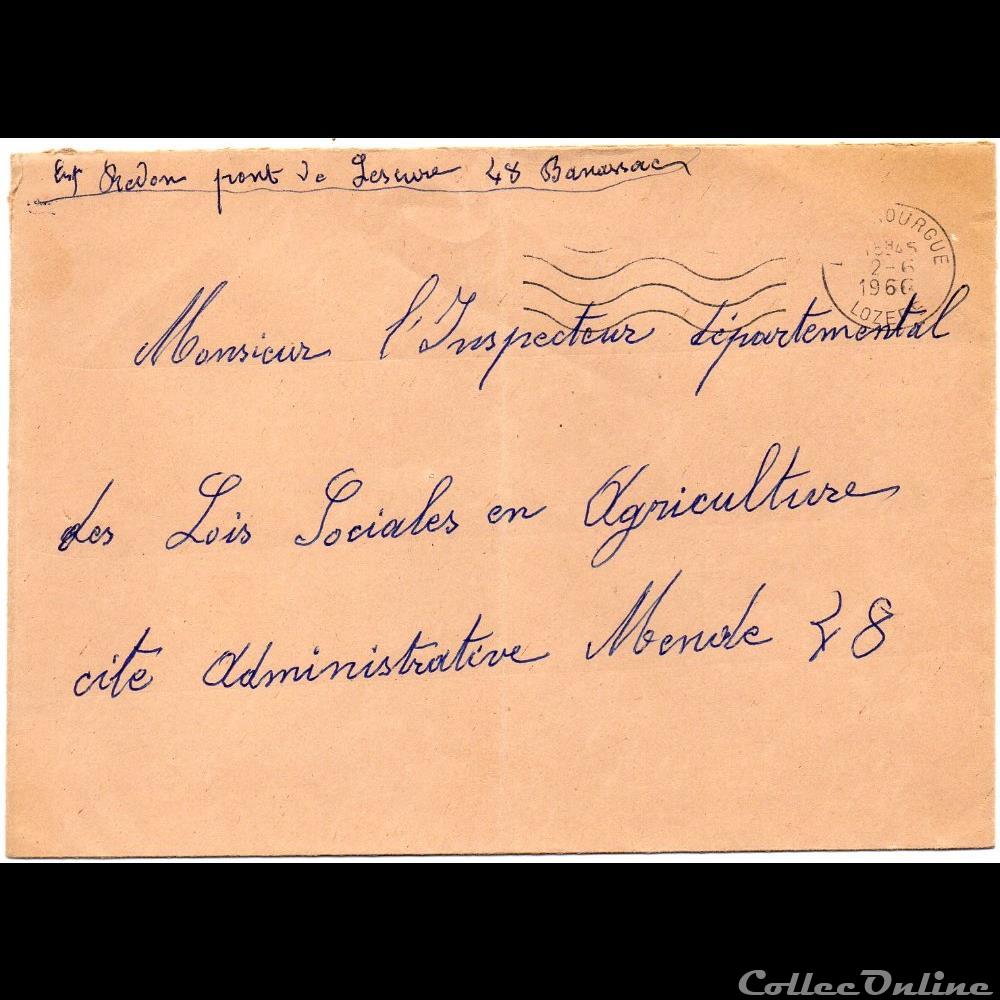 Redon pont de Lescure 48 Banassac
OURGUE
2-6
1966
LOZERE
Monsieur l'Inspecteur départemental
des Lois Sociales en Agriculture
cité Administrative Mende 48
CollecOnline